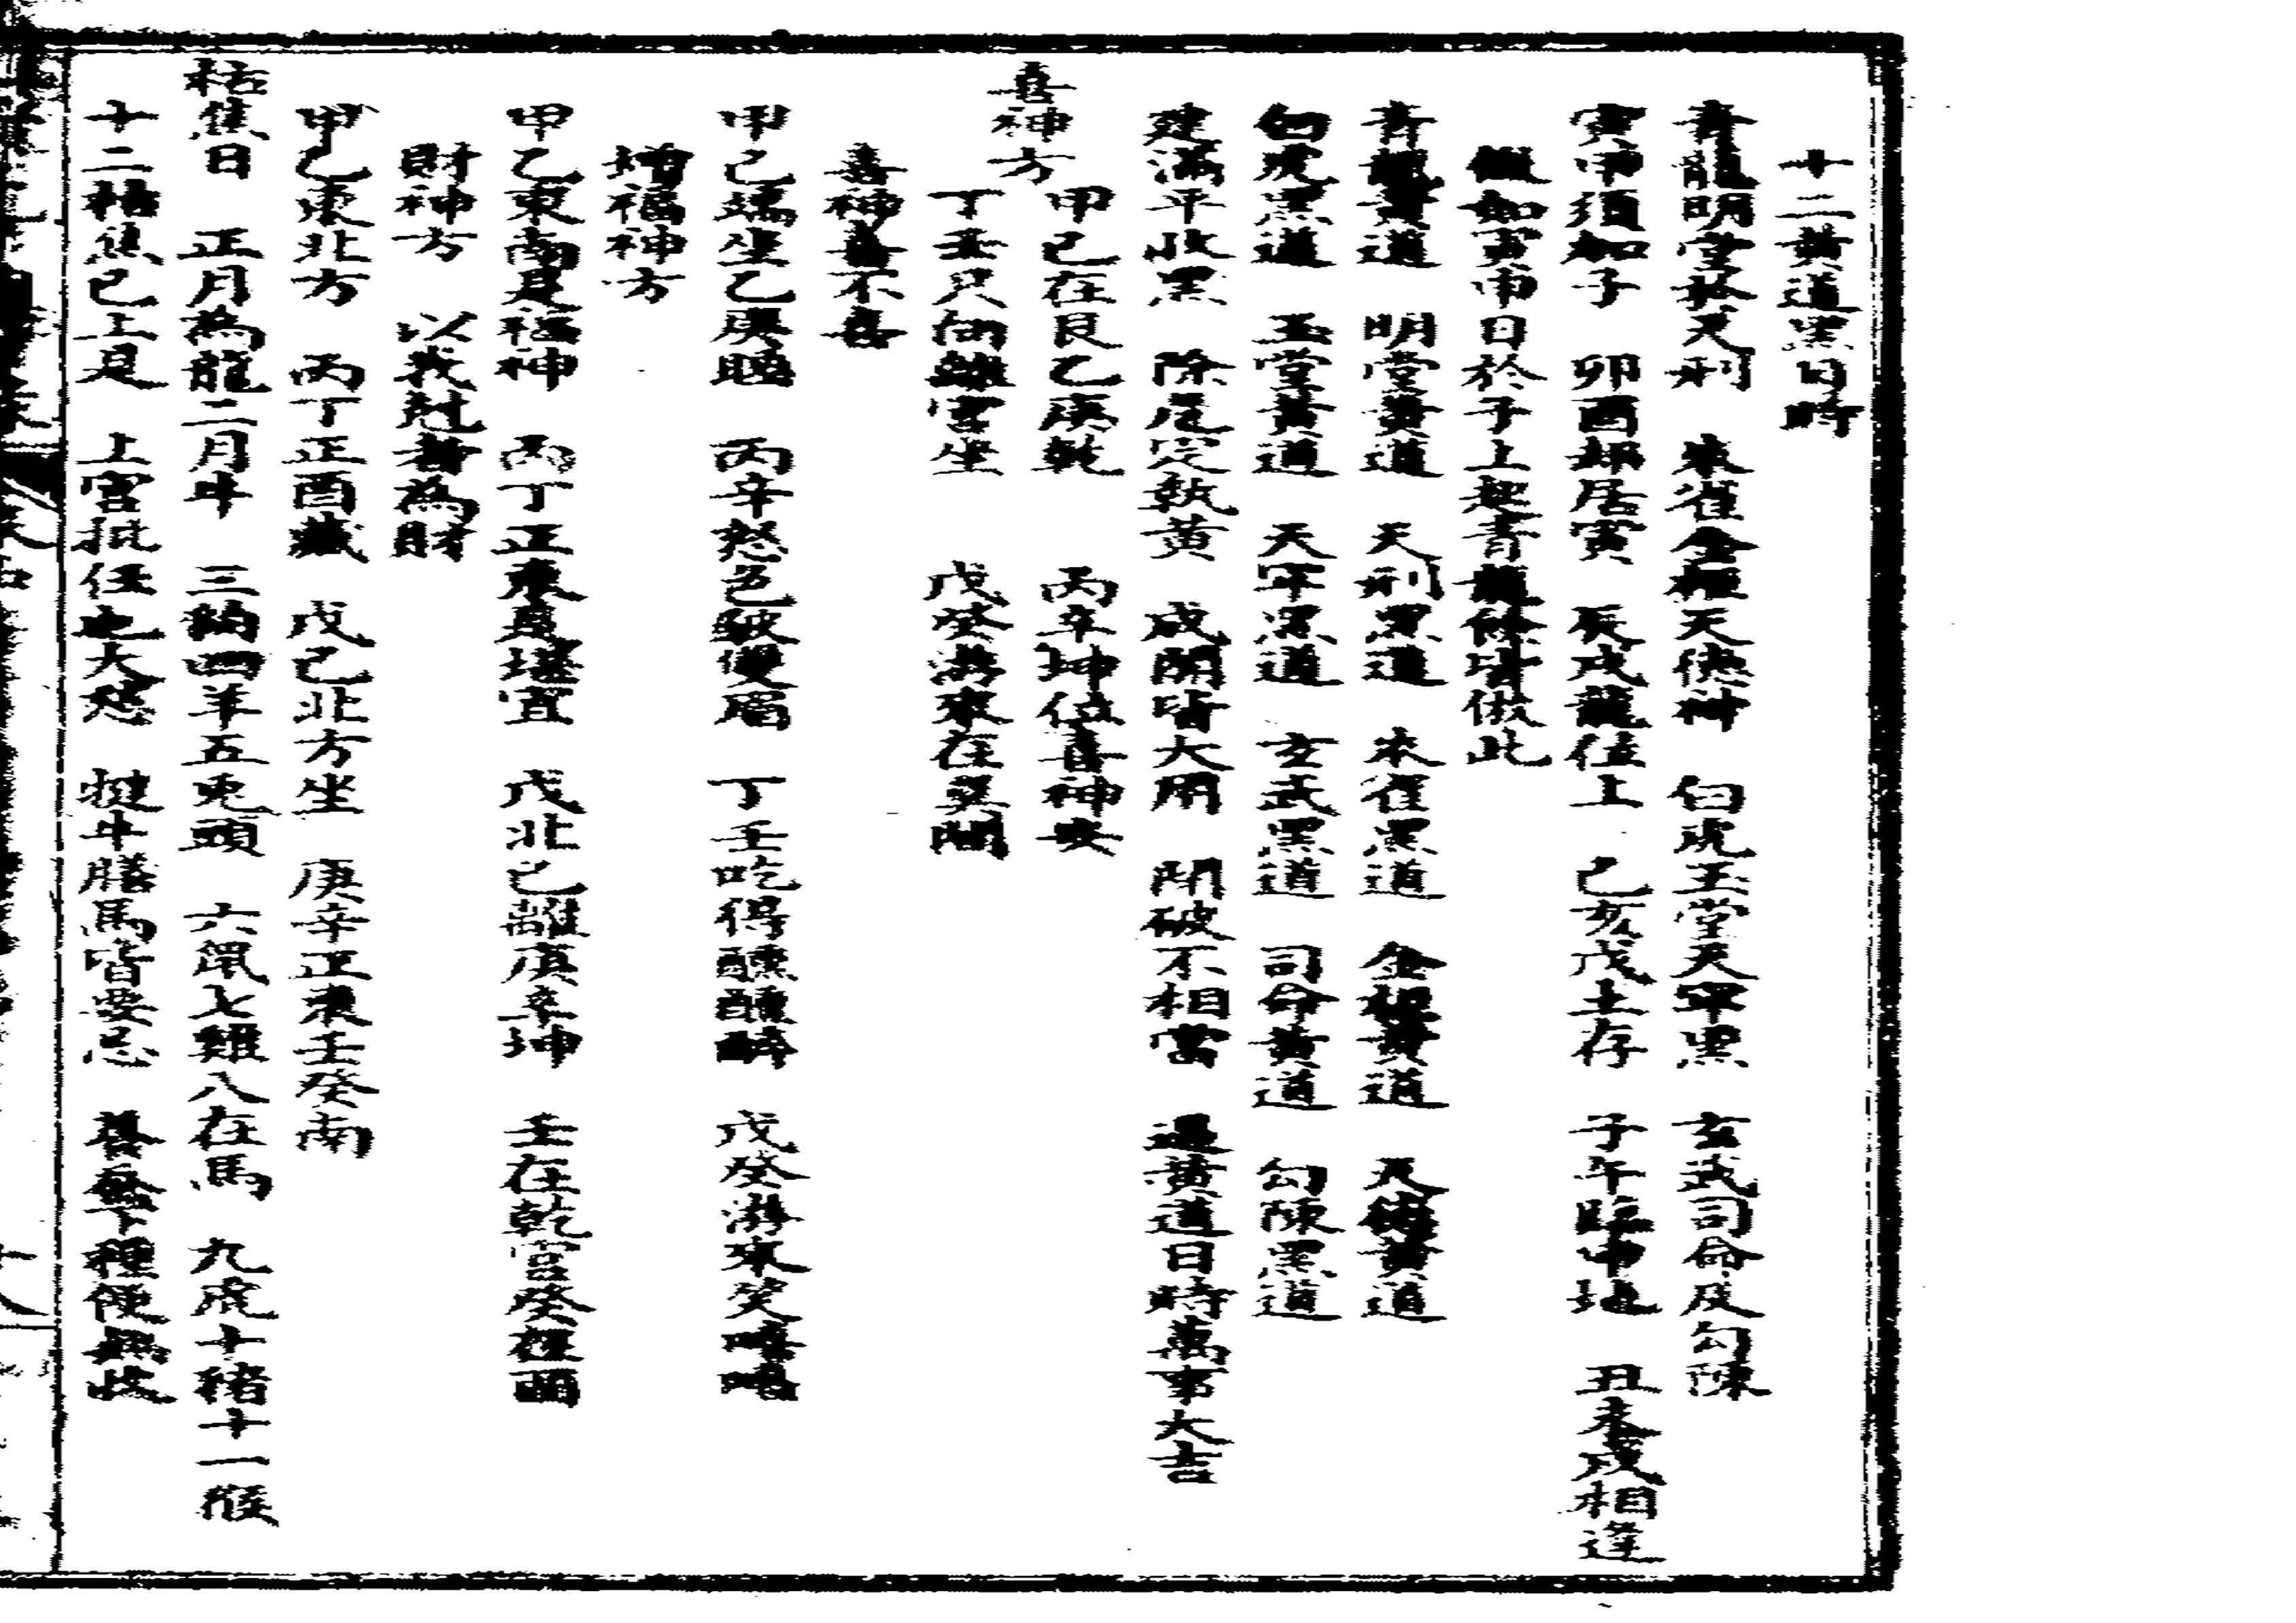 十二黃道黑日時
青龍明堂於天刑　朱雀金櫃天德神　白虎玉堂天牢黑　玄武司命及勾陳
寅申須加子　卯酉却居寅　辰戌龍位上　已亥戊土存　子午臨申地　丑未戌相逢
假如寅申日於子上起青龍餘皆倣此
青龍黃道　明堂黃道　天刑黑道　朱雀黑道　金櫃黃道　天德黃道
白虎黑道　玉堂黃道　天牢黑道　玄武黑道　司命黃道　勾陳黑道
建滿平收黑　除危定執黃　成開皆大用　閉破不相當　遇黃道日時萬事大吉
喜神方　甲己在艮乙庚乾　丙辛坤位喜神安
丁壬只向離宮坐　戊癸游來在巽間
喜神喜不喜
甲己端坐乙庚睡　丙辛怒色皺雙眉　丁壬吃得醺醺醉　戊癸游來笑嘻嘻
增福神方
甲乙東南是福神　丙丁正東是堪宜　戊北己離庚辛坤　壬在乾宮癸在酉
財神方　以我尅者為財
甲乙東北方　丙丁正酉藏　戊己北方坐　庚辛正東壬癸南
枯焦日　正月為龍二月牛　三狗四羊五兔頭　六鼠七雞八在馬　九虎十猪十一猴
十二枯焦已上是　上官抵任也大忌　犍牛膳馬皆要忌　養蚕下種便無收